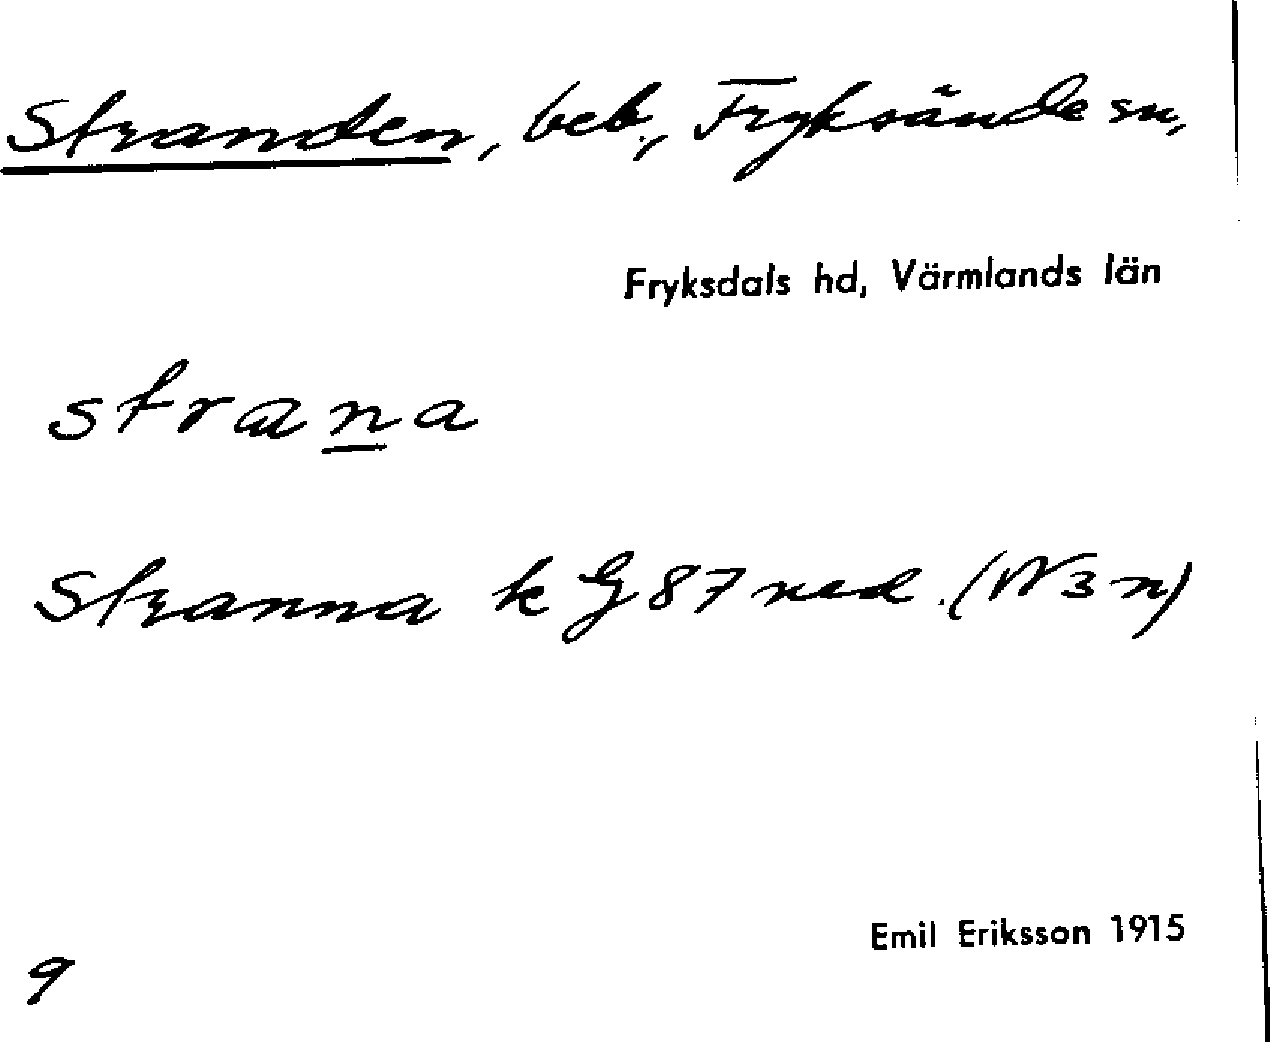 Stranden, beb., Fryksände sn,
Fryksdals hd, Värmlands län
strana
Stranna k G 87 ned. (W 3 n)
Emil Eriksson 1915
9